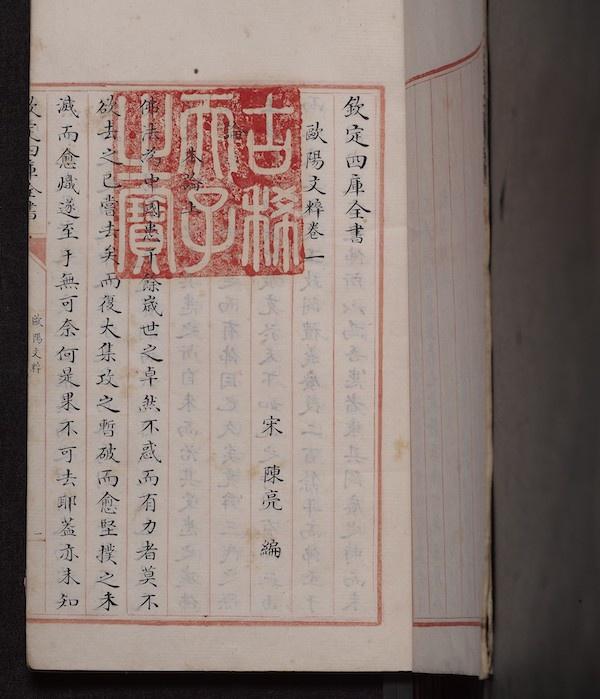 欽定四庫全書
歐陽文粹卷一
宋 陳亮 編
論
本論上
佛法為中國患千餘歲世之卓然不惑而有力者莫不
欲去之已嘗去矣而復大集攻之暫破而愈堅撲之未
滅而愈熾遂至于無可奈何是果不可去耶蓋亦未知
欽定四庫全書
歐陽文粹
一
古稀
天子
之寶